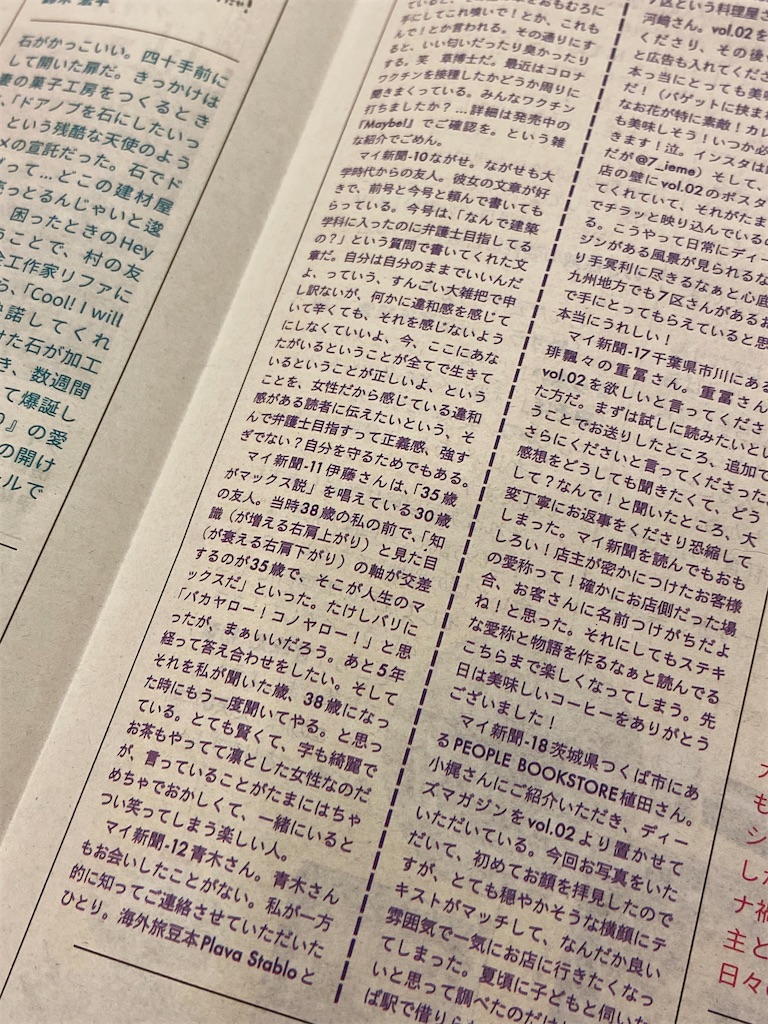 石がかっこいい。四十手前に
して開いた扉だ。きっかけは
妻の菓子工房をつくるとき
、「ドアノブを石にしたいっ
という残酷な天使のよう
メの宣託だった。石でド
って…どこの建材屋
売っとるんじゃいと逡
困ったときのHey
うことで、村の友
金工作家リファに
ら、「Cool! I will
諾してくれ
けた石が加工
き、数週間
て爆誕し
』の愛
の開け
ルで
手にしてこれ嗅いで!とか、これも
んで!とか言われる。その通りにす
ると、いい匂いだったり臭かったり
する。笑 草博士だ。最近はコロナ
ワクチンを接種したかどうか周りに
聞きまくっている。みんなワクチン
打ちましたか?…詳細は発売中の
『Maybe!』でご確認を。という雑
な紹介でごめん。
マイ新聞-10ながせ。ながせも大
学時代からの友人。彼女の文章が好
きで、前号と今号と頼んで書いても
らっている。今号は、「なんで建築
学科に入ったのに弁護士目指してる
の?」という質問で書いてくれた文
章だ。自分は自分のままでいいんだ
よ、っていう、すんごい大雑把で申
し訳ないが、何かに違和感を感じて
いて辛くても、それを感じないよう
にしなくていいよ、今、ここにあな
たがいるということが全てで生きて
いるということが正しいよ、という
ことを、女性だから感じている違和
感がある読者に伝えたいという、そ
んで弁護士目指すって正義感、強す
ぎでない?自分を守るためでもある。
マイ新聞-11伊藤さんは、「35歳
がマックス説」を唱えている30歳
の友人。当時38歳の私の前で、「知
識(が増える右肩上がり)と見た目
(が衰える右肩下がり)の軸が交差
するのが35歳で、そこが人生のマ
ックスだ」といった。たけしバリに
「バカヤロー!コノヤロー!」と思
ったが、まぁいいだろう。あと5年
経って答え合わせをしたい。そして
それを私が聞いた歳、38歳になっ
た時にもう一度聞いてやる。と思っ
ている。とても賢くて、字も綺麗で
お茶もやってて凛とした女性なのだ
が、言っていることがたまにはちゃ
めちゃでおかしくて、一緒にいると
つい笑ってしまう楽しい人。
マイ新聞-12青木さん。青木さん
もお会いしたことがない。私が一方
的に知ってご連絡させていただいた
ひとり。海外旅豆本Plava Stabloと
区という料理屋さ
河﨑さん。vol.02を
くださり、その後
と広告も入れてくださ
本っ当にとっても美味
だ!(バゲットに挟まれ
なお花が特に素敵!カレ
も美味しそう!いつか必
きます!泣。インスタは
だが@7_ieme)そして、
店の壁にvol.02のポスタ
てくれていて、それがたま
でチラッと映り込んでいるの
る。こうやって日常にディー
ジンがある風景が見られるな
り手冥利に尽きるなぁと心底
九州地方でも7区さんがあるお
で手にとってもらえていると思
本当にうれしい!
マイ新聞-17千葉県市川にある
琲飄々の重冨さん。重冨さん
vol.02を欲しいと言ってくださっ
た方だ。まずは試しに読みたいとい
うことでお送りしたところ、追加で
さらにくださいと言ってくださった。
感想をどうしても聞きたくて、どう
して?なんで!と聞いたところ、大
変丁寧にお返事をくださり恐縮して
しまった。マイ新聞を読んでもおも
しろい!店主が密かにつけたお客様
の愛称って!確かにお店側だった場
合、お客さんに名前つけがちだよ
ね!と思った。それにしてもステキ
な愛称と物語を作るなぁと読んでる
こちらまで楽しくなってしまう。先
日は美味しいコーヒーをありがとう
ございました!
マイ新聞-18茨城県つくば市にあ
るPEOPLE BOOKSTORE植田さん。
小梶さんにご紹介いただき、ディー
ズマガジンをvol.02より置かせて
いただいている。今回お写真をいた
だいて、初めてお顔を拝見したので
すが、とても穏やかそうな横顔にテ
キストがマッチして、なんだか良い
雰囲気で一気にお店に行きたくなっ
てしまった。夏頃に子どもと伺いた
いと思って調べたのだけ
ば駅で借りら
も
シ
した
ナ禍
主と
日々